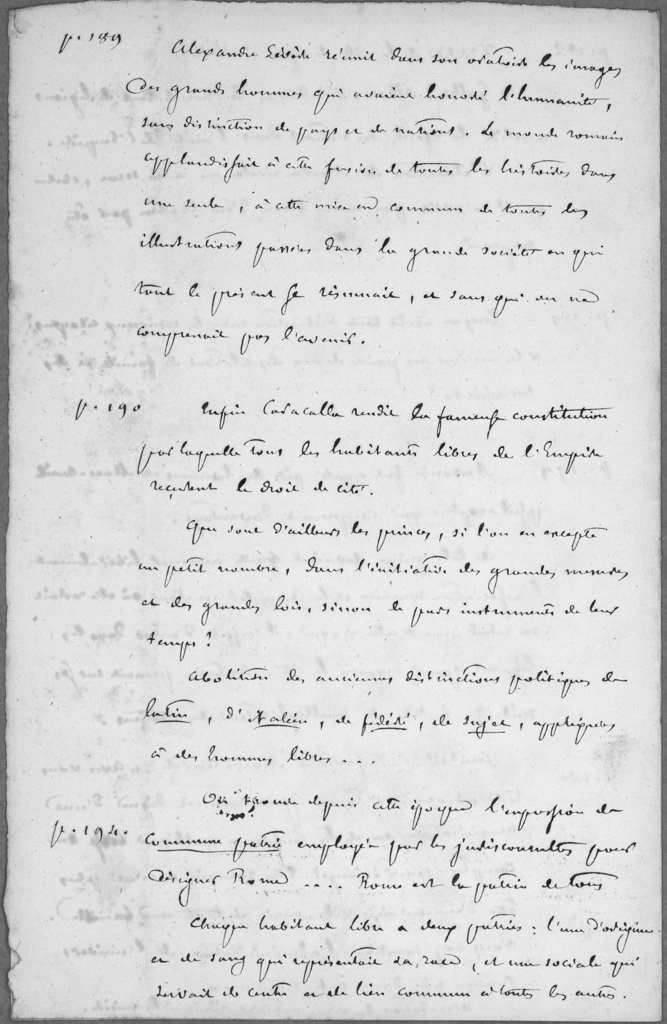 p. 189
Alexandre Sévère réunit dans son oratoire les images
des grands hommes qui avaient honoré l'humanité,
sans distinction de pays et de nations. Le monde romain
applaudissait à cette fusion de toutes les histoires dans
une seule, à cette mise en commun de toutes les
illustrations passées dans la grande société en qui
tout le présent se résumait, et sans qui on ne
comprenait pas l'avenir.
p. 190 Enfin Caracalla rendit la fameuse constitution
par laquelle tous les habitants libres de l'Empire
reçurent le droit de cité.
Que sont d'ailleurs les princes, si l'on en excepte
un petit nombre, dans l'initiative des grandes mesures
et des grandes lois, sinon de purs instruments de leur
temps?
Abolition des anciennes distinctions politiques de
latin, d'italien, de fédéré, de sujet, appliquées
à des hommes libres...
On trouve depuis cette époque l'expression de
p. 194.
commune patrie employée par les jurisconsultes pour
désigner Rome .... Rome est la patrie de tous
Chaque habitant libre a deux patries: l'une d'origine
et de sang qui représentait sa race, et une sociale qui
servait de centre et de lien commun à toutes les autres.